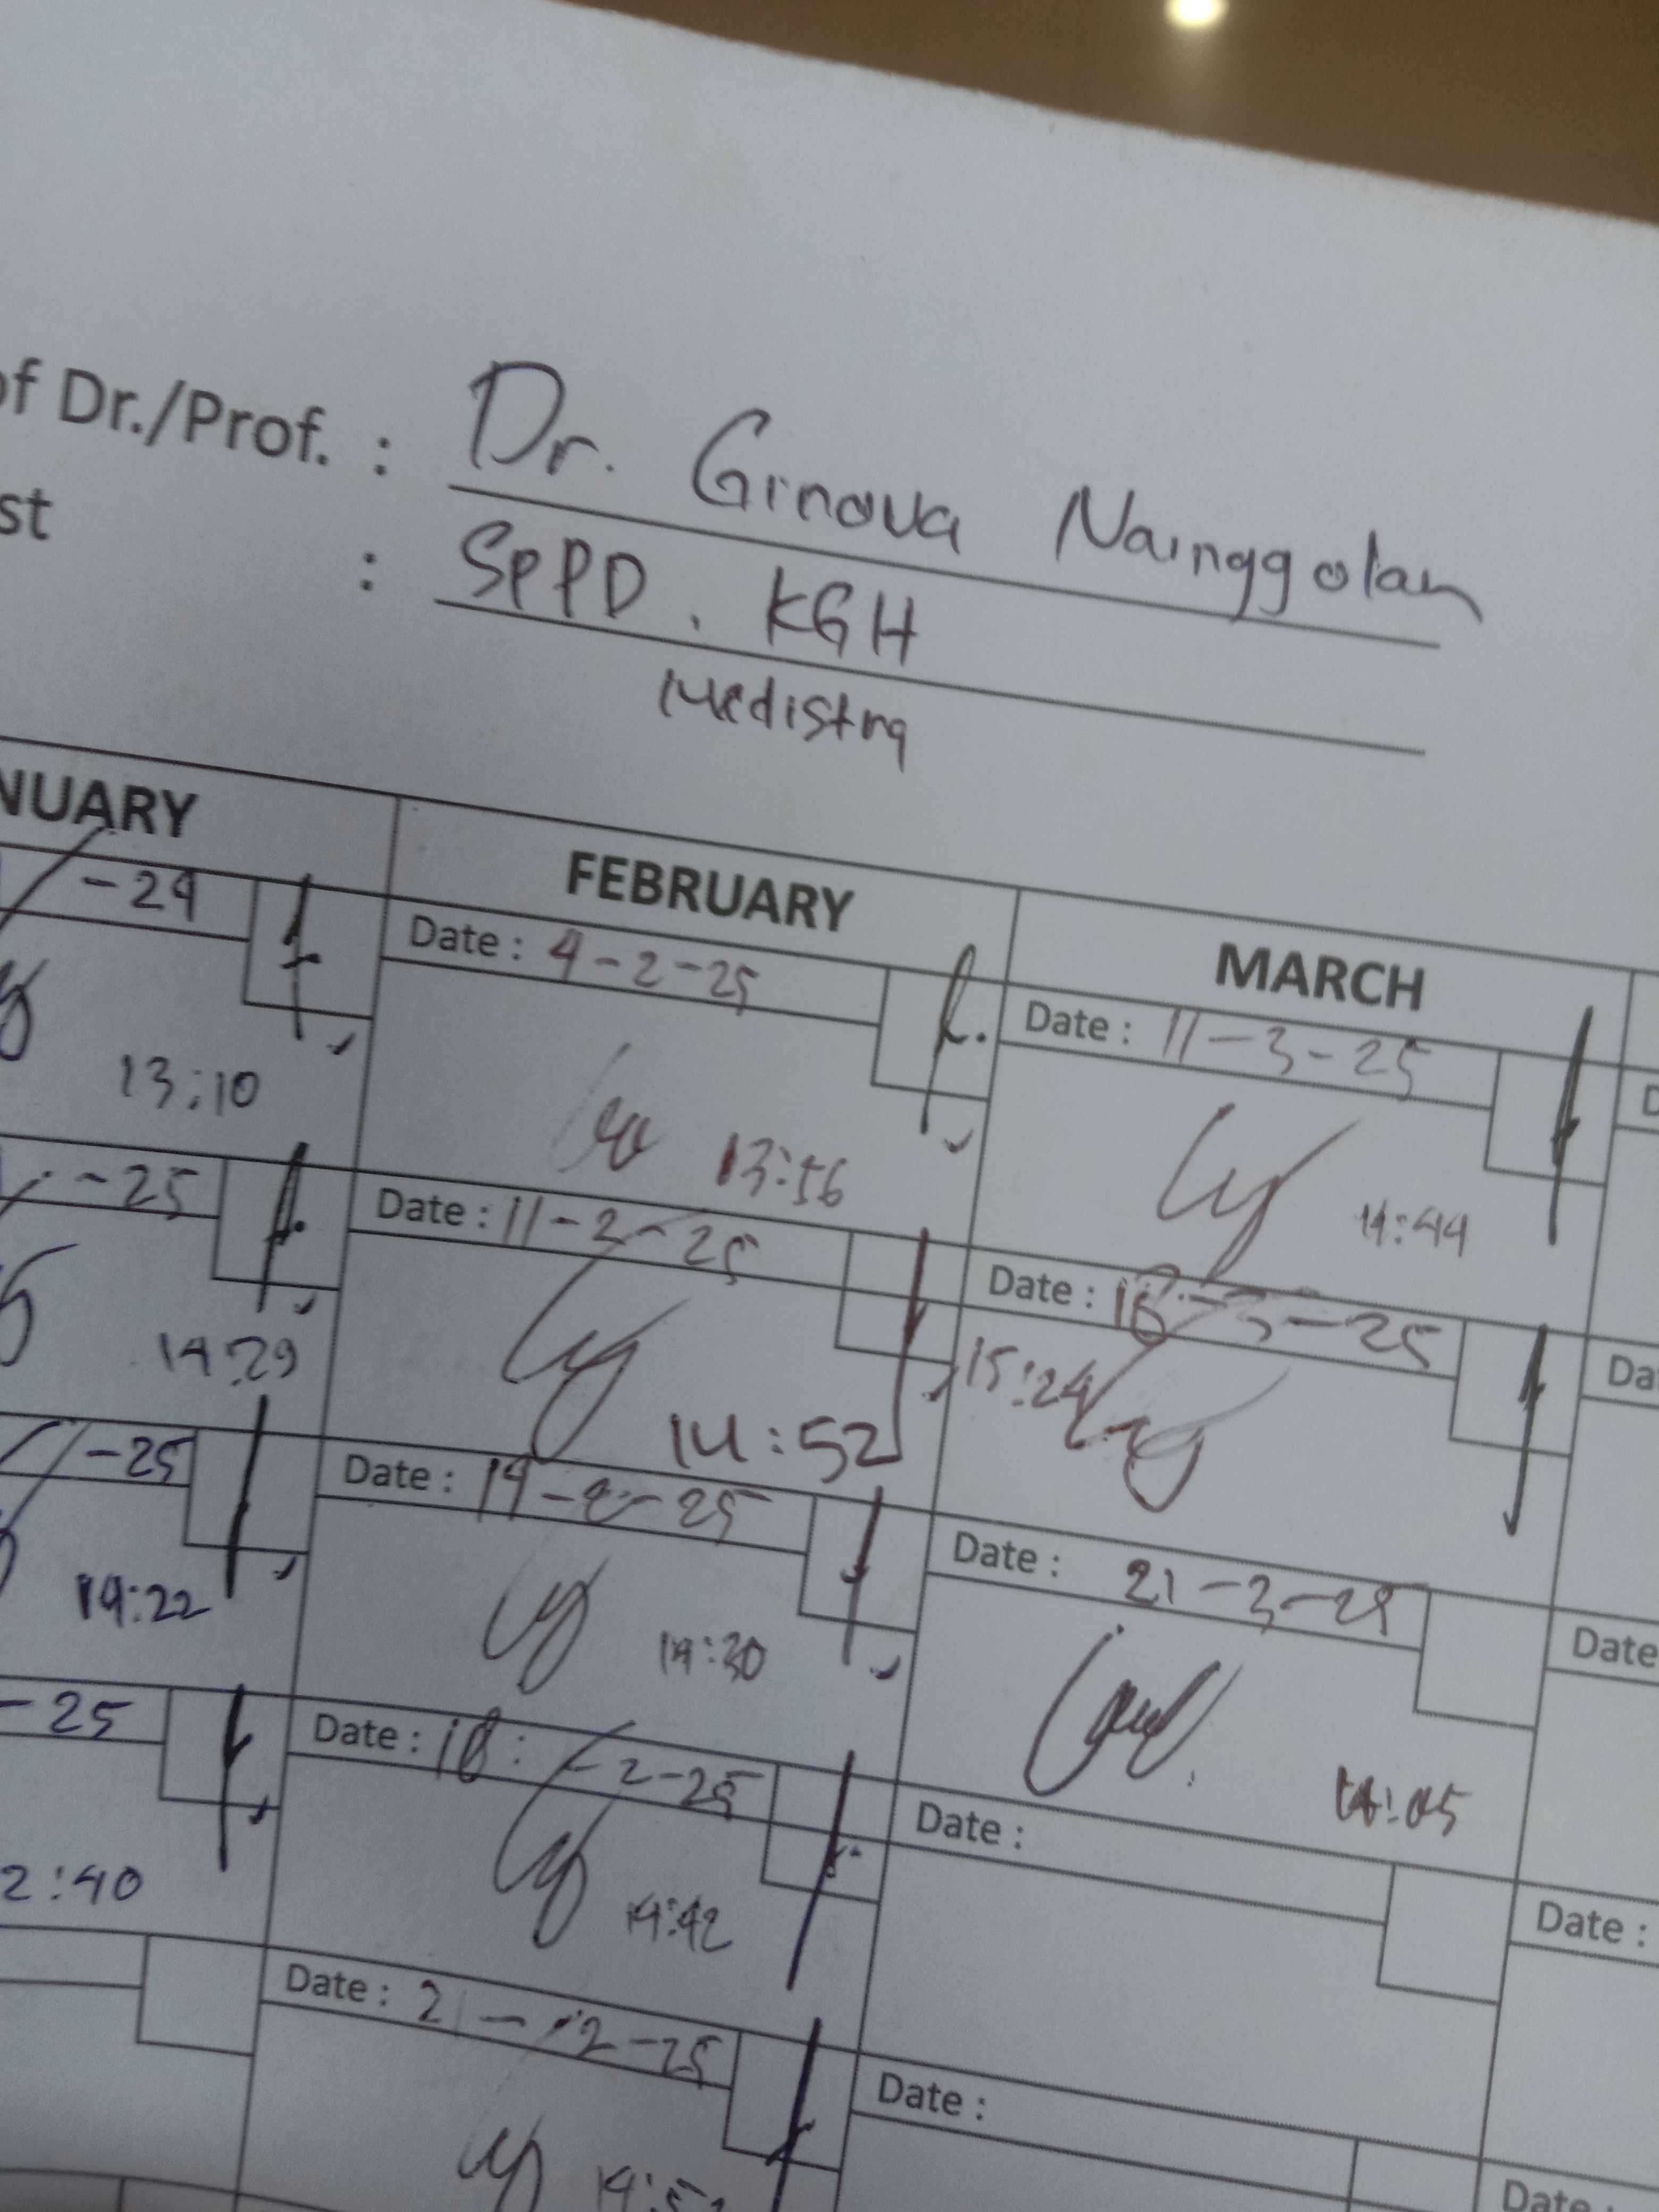 of Dr./Prof. : Dr. Ginova Nainggolan
st : SPPD. KGH
Medistra
NUARY FEBRUARY MARCH
-24
13:10
-25
14:29
-25
14:22
-25
2:40
Date : 4-2-25
13:56
Date : 11-2-25
14:52
Date : 14-2-25
14:30
Date : 18-2-25
14:42
Date : 21-2-25
Date : 11-3-25
14:44
Date : 18-3-25
15:24
Date : 21-3-25
Date :
Date :
Da
Date
Date :
Date :